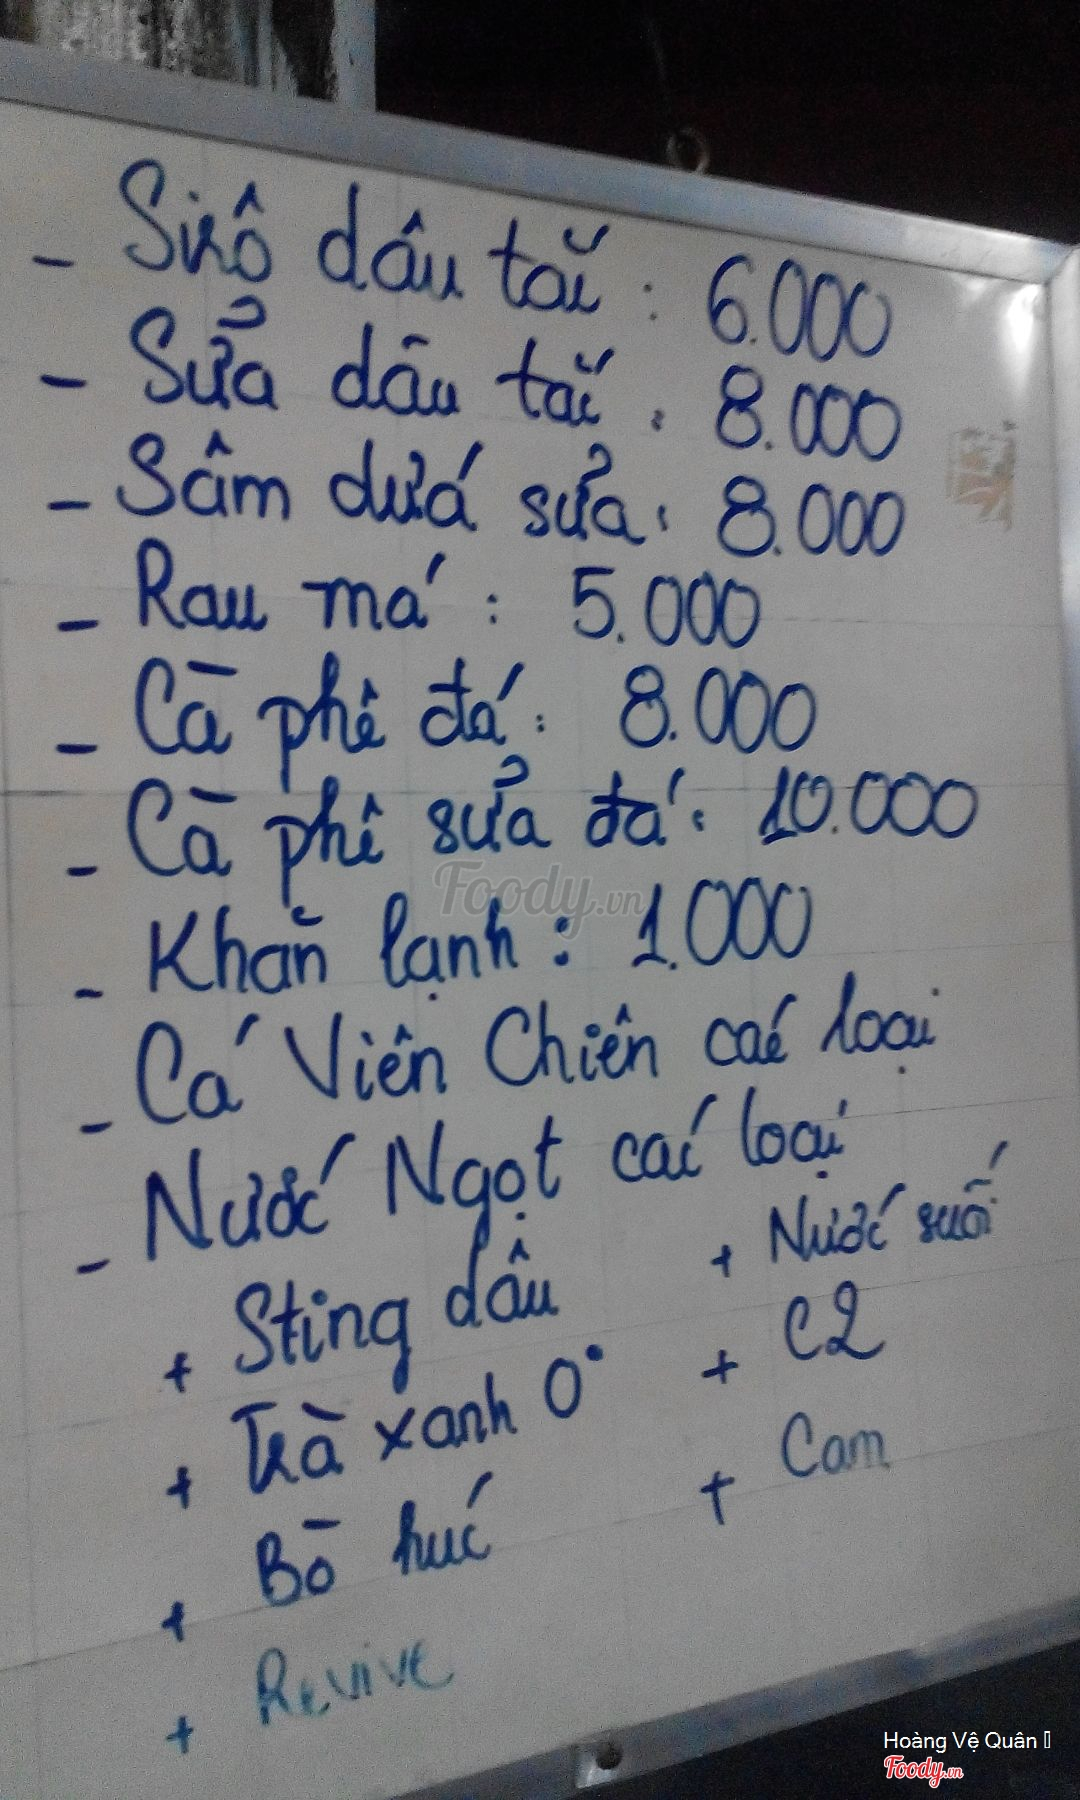 - Sirô dâu tắi : 6.000
- Sửa dâu tắi : 8.000
- Sâm dứá sửa : 8.000
- Rau má : 5.000
- Cà phê đá : 8.000
- Cà phê sửa đá : 10.000
- Khăn lạnh : 1.000
- Cá Viên Chiên các loại
- Nước Ngọt các loại
+ Sting dâu
+ Nước suối
+ Trà xanh 0°
+ C2
+ Bò húc
+ Cam
+ Revive
Foody.vn
Hoàng Vệ Quân
Foody.vn